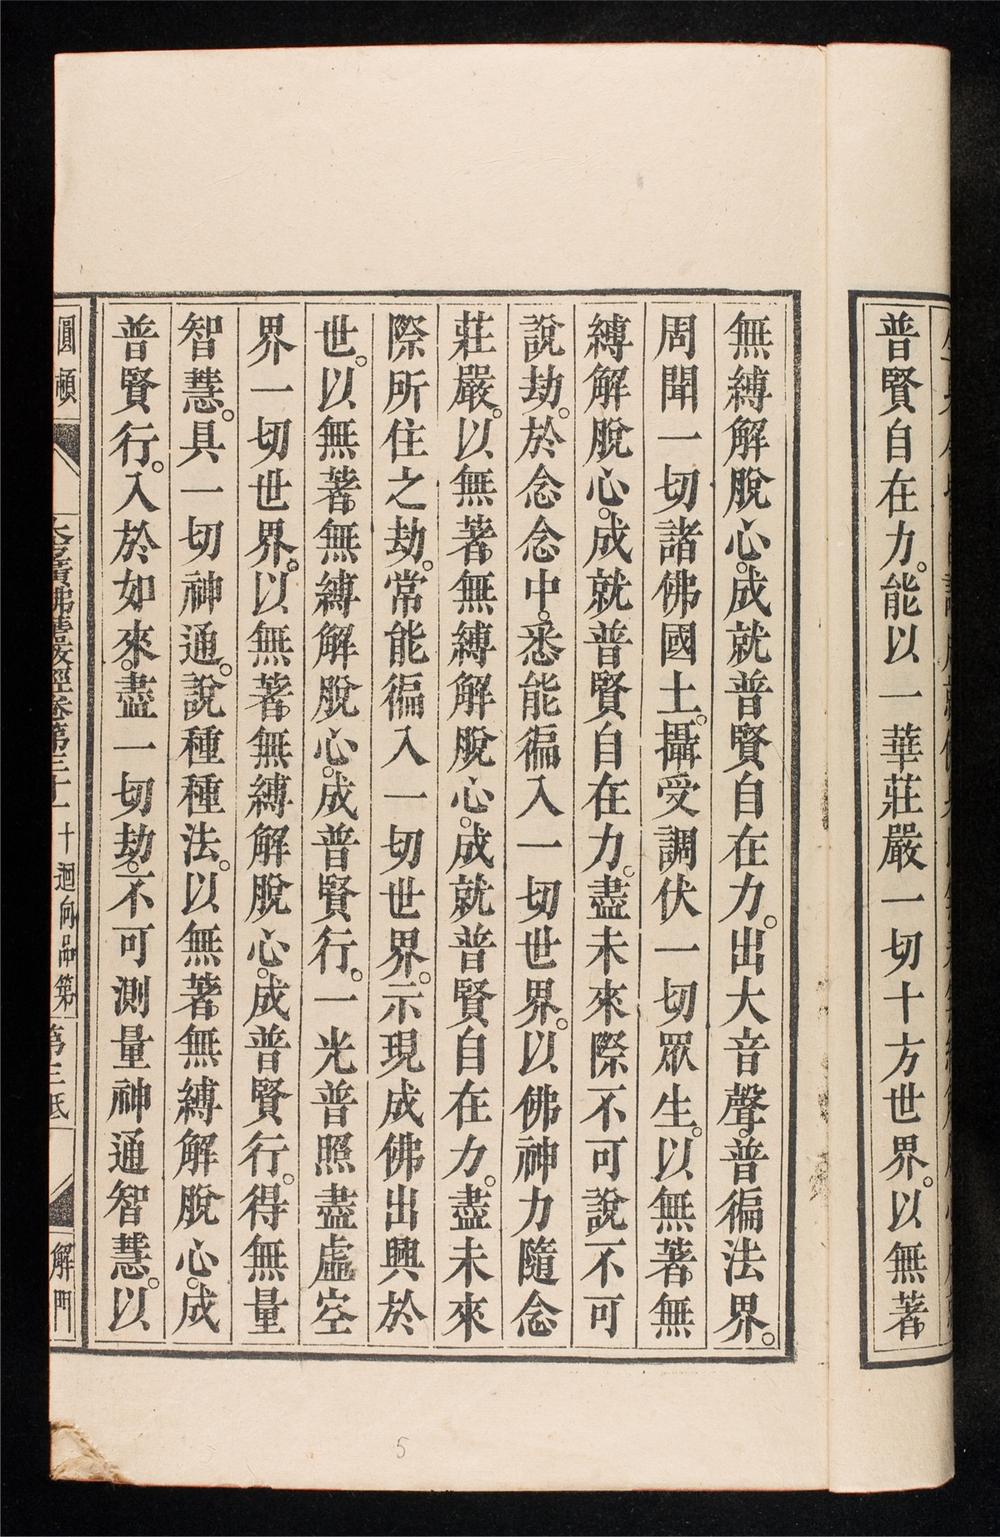 普賢自在力。能以一華莊嚴一切十方世界。以無著
無縛解脫心。成就普賢自在力。出大音聲。普徧法界。
周聞一切諸佛國土。攝受調伏一切眾生。以無著無
縛解脫心。成就普賢自在力。盡未來際不可說不可
說劫。於念念中。悉能徧入一切世界。以佛神力隨念
莊嚴。以無著無縛解脫心。成就普賢自在力。盡未來
際所住之劫。常能徧入一切世界。示現成佛出興於
世。以無著無縛解脫心。成普賢行。一光普照盡虛空
界一切世界。以無著無縛解脫心。成普賢行。得無量
智慧。具一切神通。說種種法。以無著無縛解脫心。成
普賢行。入於如來。盡一切劫。不可測量神通智慧。以
圓頓 大方廣佛華嚴經卷第三十一 十迴向品第 第三紙 解門
5